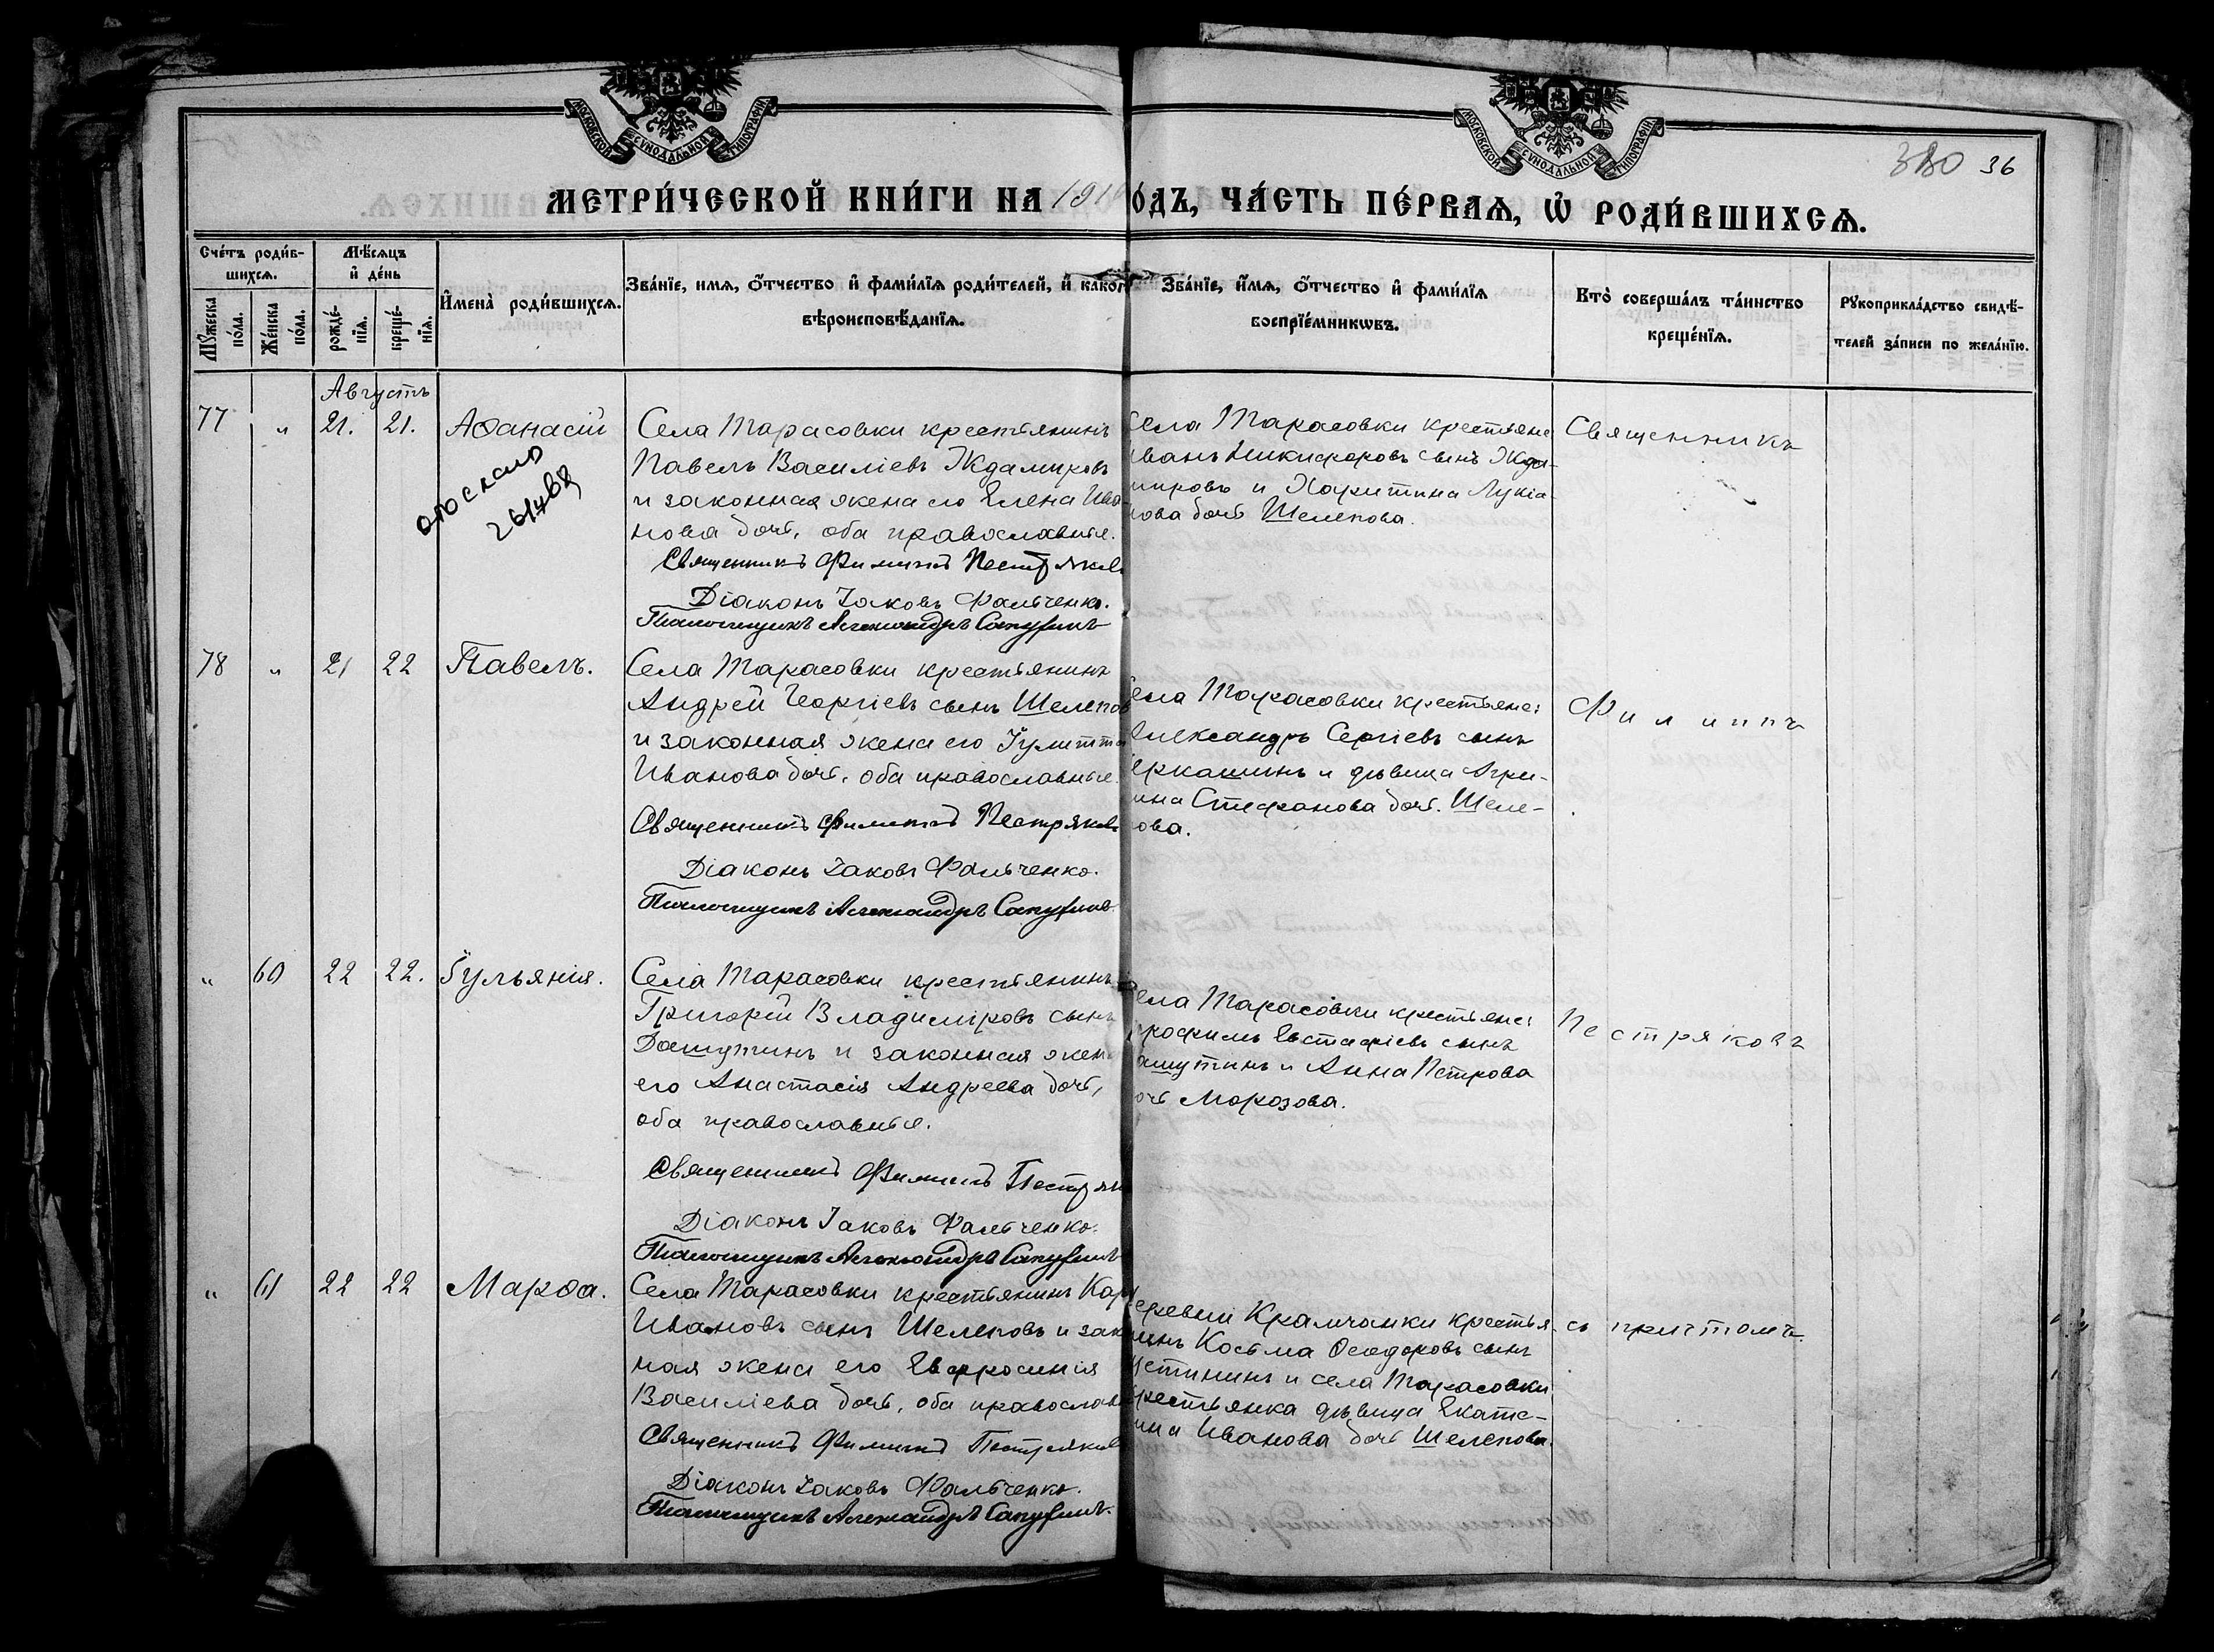 МОСКОВСКОЙ СУНОДАЛЬНОЙ ТИПОГРАФІИ
МОСКОВСКОЙ СУНОДАЛЬНОЙ ТИПОГРАФІИ
36
МЕТРИ́ЧЕСКОЙ КНИ́ГИ НА 191
ОДЪ, ЧА́СТЬ ПЕ́РВАѦ, Ѡ РОДИ́ВШИХСѦ.
Сче́тъ роди́в-
шихсѧ.
Мꙋ́жеска
по́ла.
Же́нска
по́ла.
Мѣ́сѧцъ
и҆ де́нь
рожде́-
нїѧ.
креще́-
нїѧ.
И҆мена̀ роди́вшихсѧ.
Зва́нїе, имѧ, ѻ҆́тчество и҆ фами́лїѧ роди́телей, и҆ како́г
вѣроисповѣ́данїѧ.
Зва́нїе, и҆́мѧ, ѻ҆́тчество и҆ фами́лїѧ
воспрїе́мникѡвъ.
Кто̀ соверша́лъ та́инство
креще́нїѧ.
Рꙋкоприкла́дство свидѣ́-
телей за́писи по жела́нїю.
Августъ
77 " 21. 21. Аѳанасій
Села Тарасовки крестьянинъ
Павелъ Василіевъ Ждамировъ
и законная жена его Елена Ива-
нова дочь, оба православные.
Священникъ Филиппъ Пестряковъ
Діаконъ Іаковъ Фальченко.
Псаломщикъ Александръ
Села Тарасовки крестьяне
Иванъ Никифоровъ сынъ Жда-
мировъ и Харитина Лукіа-
нова дочь Шелепова.
Священникъ
78 " 21 22 Павелъ.
Села Тарасовки крестьянинъ
Андрей Георгіевъ сынъ Шелепов
и законная жена его Іулитта
Иванова дочь, оба православные.
Священникъ Филиппъ Пестряковъ
Діаконъ Іаковъ Фальченко.
Псаломщикъ Александръ
ела Тарасовки крестьяне:
Александръ Сергіевъ сынъ
еркашинъ и дѣвица Агри-
ина Стефанова дочь Шеле-
ова.
Филиппъ
" 60 22 22. Іульянія.
Села Тарасовки крестьянинъ
Григорій Владиміровъ сынъ
Дашутинъ и законная жена
его Анастасія Андреева дочь,
оба православные.
Священникъ Филиппъ Пестряк
Діаконъ Іаковъ Фальченко.
Псаломщикъ Александръ
ела Тарасовки крестьяне:
рофимъ Евстафіевъ сынъ
ашутинъ и Анна Петрова
очь Морозова.
Пестряковъ
" 61 22 22 Марѳа.
Села Тарасовки крестьянинъ Кар
Ивановъ сынъ Шелеповъ и зак
ная жена его Евфросинія
Василіева дочь, оба православ
Священникъ Филиппъ Пестряков
Діаконъ Іаковъ Фальченко.
Псаломщикъ Александръ
еревни Крамчанки крестья-
нинъ Косьма Ѳеодоровъ сынъ
устининъ и села Тарасовки
крестьянка дѣвица Екате-
ина Иванова дочь Шелепова.
съ причтомъ.